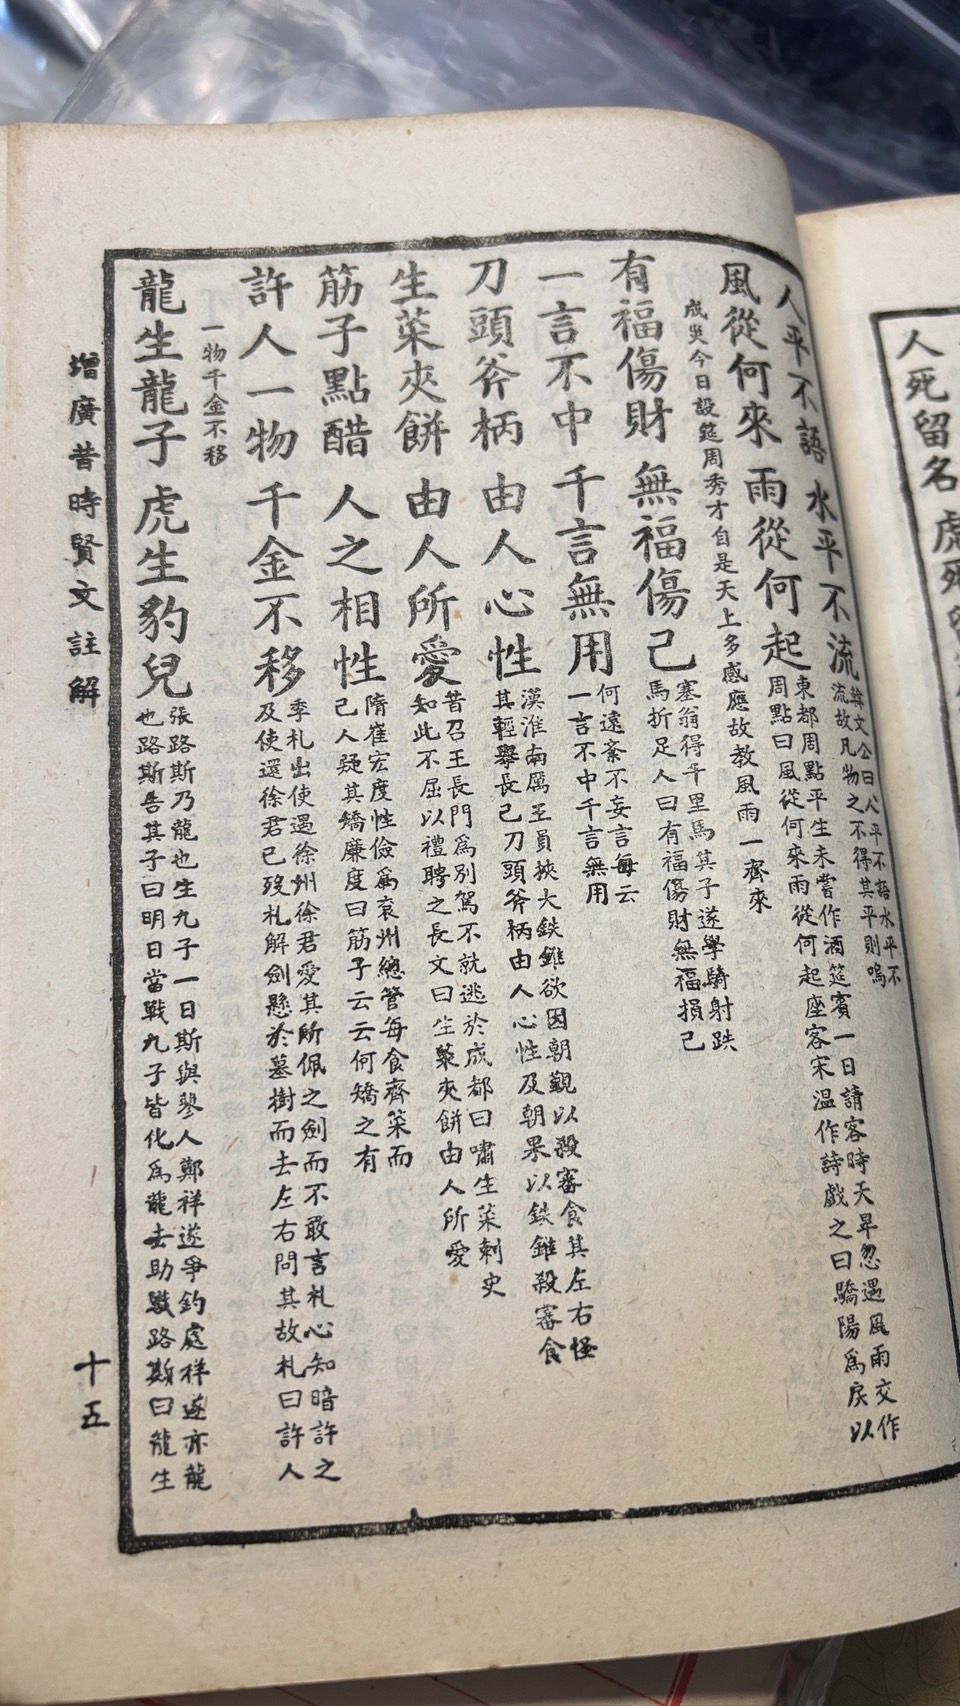 人死留名
人平不語 水平不流
韓文公曰人平不語水平不
流故凡物之不得其平則鳴
風從何來 雨從何起
東都周點平生未嘗作酒筵賓一日請客時天旱忽遇風雨交作
周點曰風從何來雨從何起座客宋温作詩戲之曰驕陽為戾以
成災今日設筵周秀才自是天上多感應故教風雨一齊來
有福傷財 無福傷己
塞翁得千里馬其子遂學騎射跌
馬折足人曰有福傷財無福損己
一言不中 千言無用
何遠紊不妄言每云
一言不中千言無用
刀頭斧柄 由人心性
漢淮南厲王員挾大鉄錐欲因朝覲以殺審食其左右怪
其輕舉長己刀頭斧柄由人心性及朝果以鉄錐殺審食
生菜夾餅 由人所愛
昔召王長門為別駕不就逃於成都曰嘯生菜刺史
知此不屈以禮聘之長文曰生菜夾餅由人所愛
筋子點醋 人之相性
隋崔宏度性儉為袁州總管每食齊菜而
己人疑其矯廉度曰筋子云云何矯之有
許人一物 千金不移
季札出使過徐州徐君愛其所佩之劍而不敢言札心知暗許之
及使還徐君已歿札解劍懸於墓樹而去左右問其故札曰許人
一物千金不移
龍生龍子 虎生豹兒
張路斯乃龍也生九子一日斯與蓼人鄭祥遂爭釣處祥遂亦龍
也路斯告其子曰明日當戰九子皆化為龍去助戰路斯曰龍生
增廣昔時賢文註解
十五